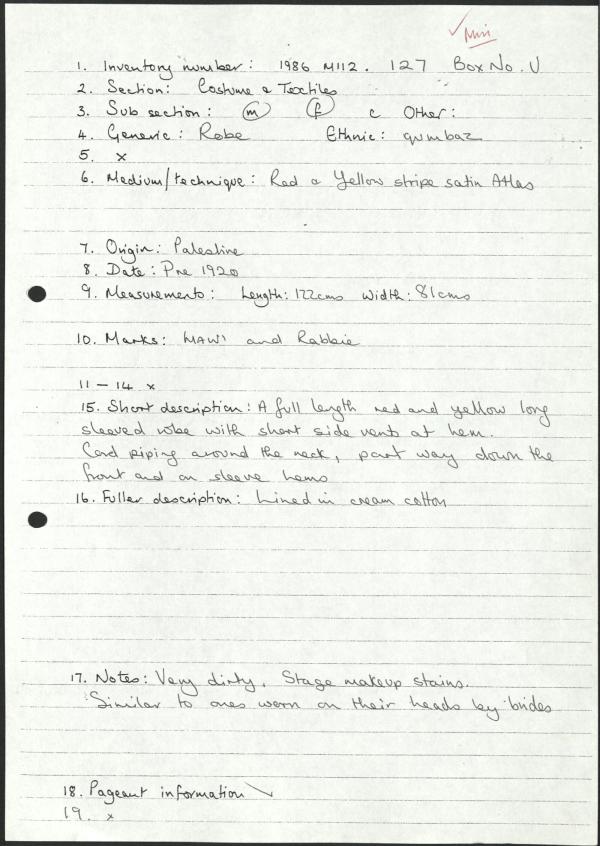 1. Inventory number: 1986 M112. 127 Box No. U
2. Section: Costume & Textiles
3. Sub section: m f c Other:
4. Generic: Robe Ethnic: qumbaz
5. x
6. Medium/technique: Red & Yellow stripe satin Atlas
7. Origin: Palestine
8. Date: Pre 1920
9. Measurements: Length: 122cms Width: 81cms
10. Marks: and Rabbie
11 - 14 x
15. Short description: A full length red and yellow long
sleeved robe with short side vents at hem.
Cord piping around the neck, part way down the
front and on sleeve hems
16. Fuller description: Lined in cream cotton
17. Notes: Very dirty. Stage makeup stains.
Similar to ones worn on their heads by brides
18. Pageant information
19. x